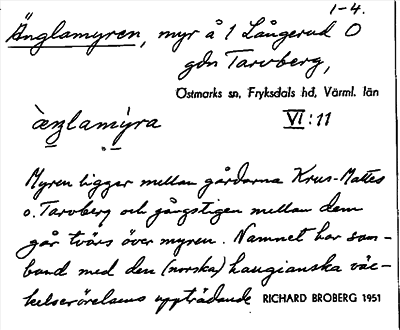 1-4.
Änglamyren, myr å 1 Långerud O
gdn Tarvberg,
Östmarks sn, Fryksdals hd, Värml. län
àŋlamỳra VI:11
Myren ligger mellan gårdarna Krus-Mattes
o. Tarvberg och gångstigen mellan dem
går tvärs över myren. Namnet har sam-
band med den (norska) haugianska väc-
kelserörelsens uppträdande RICHARD BROBERG 1951